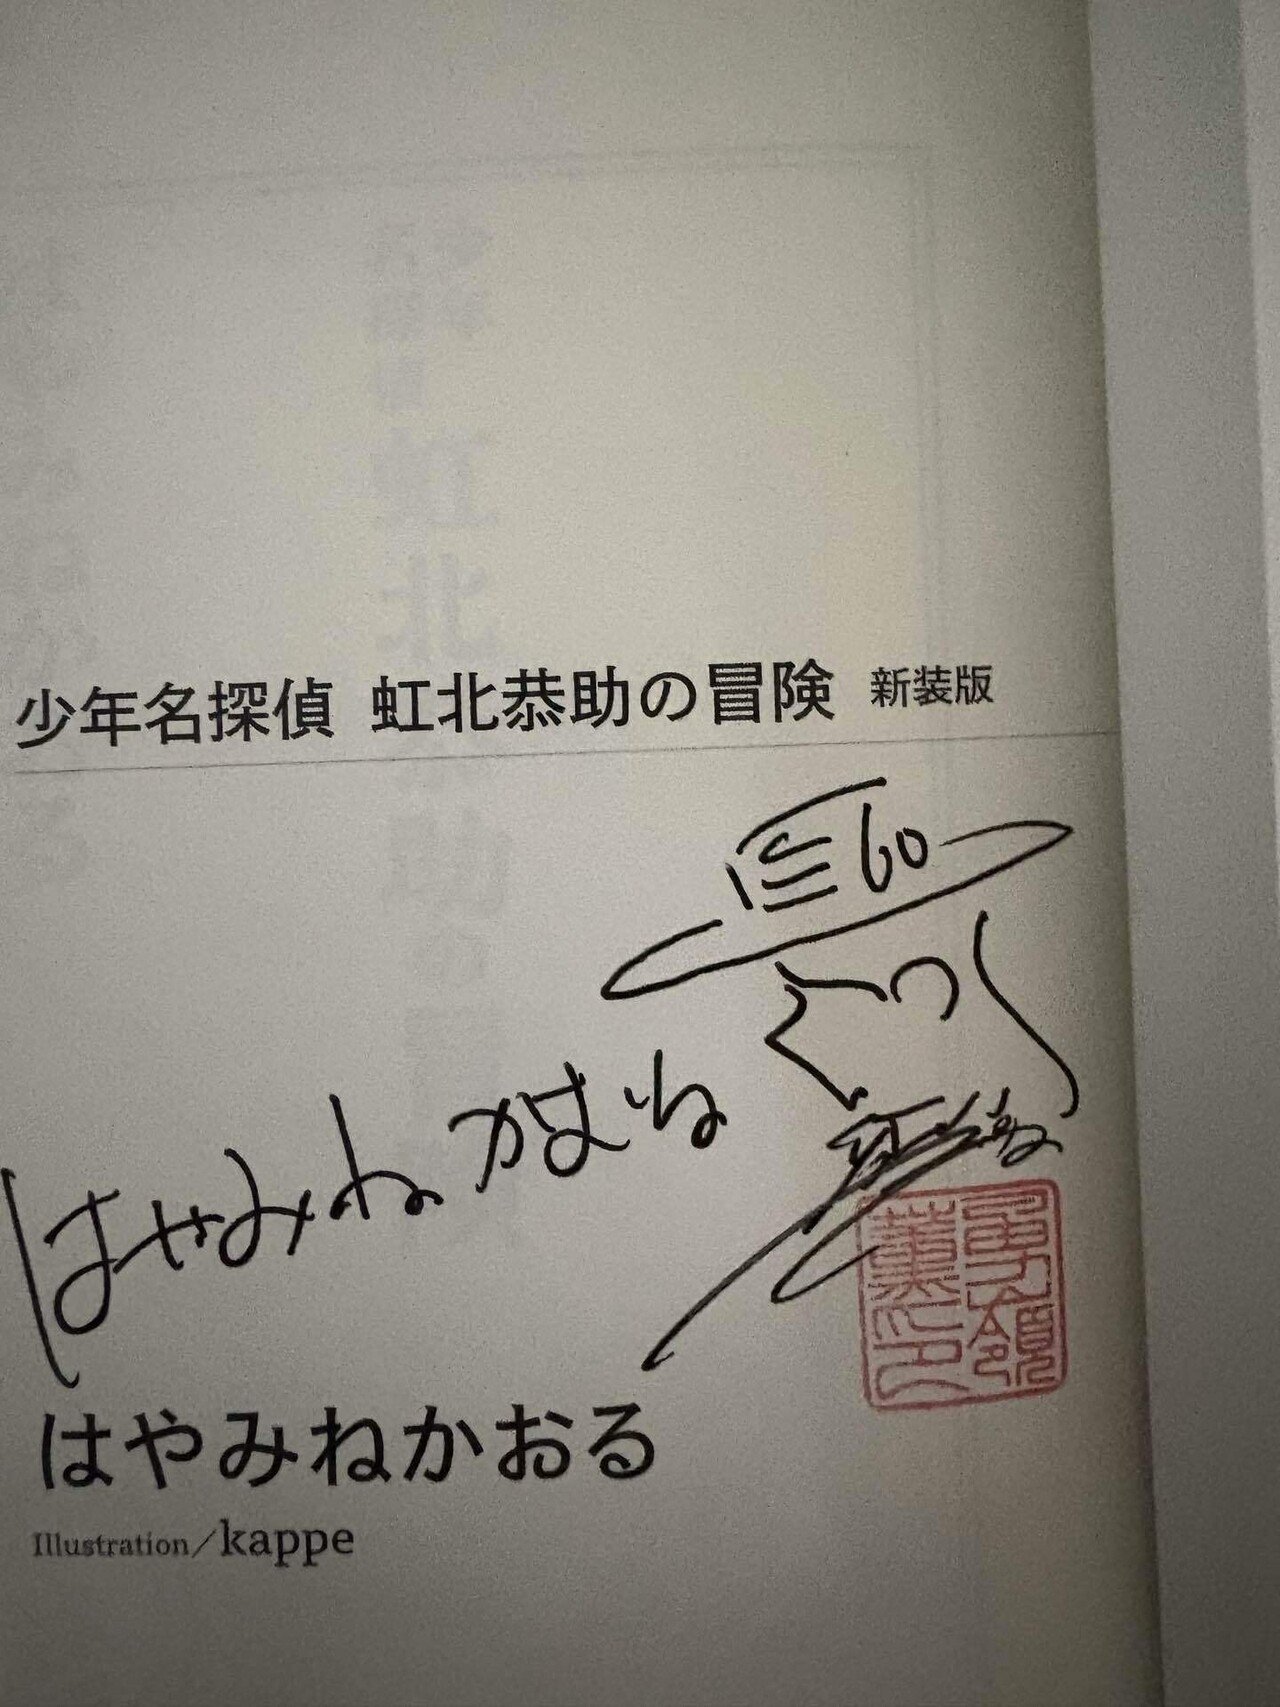 少年名探偵 虹北恭助の冒険 新装版
60
はやみねかおる
はやみねかおる
Illustration／kappe